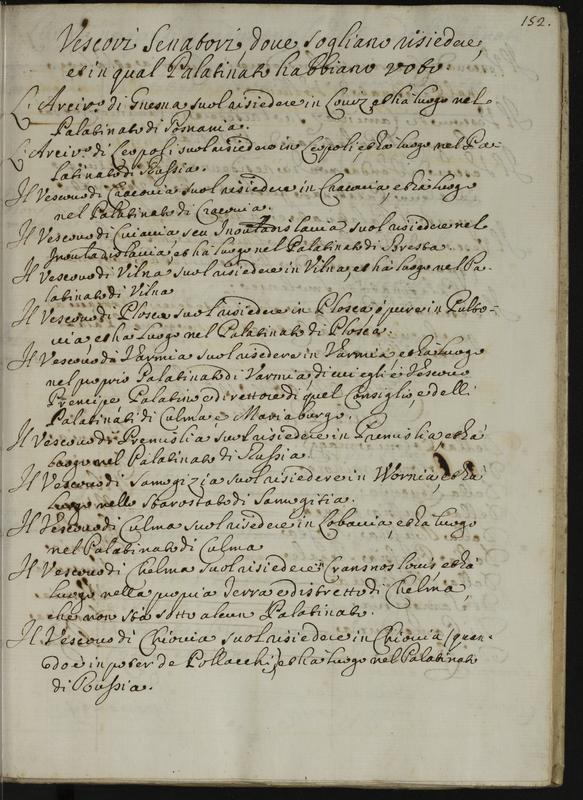 152.
Vescovi Senatori, doue sogliano risiedere,
et in qual Palatinato habbiano voto
L'Arciv.o di Gnesna suol risiedere in Louiz et ha luogo nel
Palatinato di Posnania.
L'Arciv.o di Leopoli suol risiedere in Leopoli, et ha luogo nel Pa-
latinato di Russia.
Il Vescouo di Cracouia suol risiedere in Cracouia, et ha luogo
nel Palatinato di Cracouia.
Il Vescouo di Cuiauia seu Inouladislauia suol risiedere nel
Inouladislauia, et ha luogo nel Palatinato di Bresta.
Il Vescouo di Vilna suol risiedere in Vilna, et ha luogo nel Pa-
latinato di Vilna
Il Vescouo di Plosca suol risiedere in Plosca ò pure in Pulto-
uia, et ha luogo nel Palatinato di Plosca.
Il Vescouo di Varmia suol risiedere in Varmia et ha luogo
nel proprio Palatinato di Varmia di cui egli è Vescouo
Prencipe Palatino e direttore di quel Consiglio, e delli
Palatinati di Culma e Mariaburgo.
Il Vescouo di Premislia suol risiedere in Premislia, et ha
luogo nel Palatinato di Russia.
Il Vescouo di Samogizia suol risiedere in Wornia, et ha
luogo nello Starostato di Samogitia.
Il Vescouo di Culma suol risiedere in Lobauia, et ha luogo
nel Palatinato di Culma
Il Vescouo di Chelma suol risiedere Cransnoslouis, et ha
luogo nella propria Terra e distretto di Chelma,
che non sta sotto alcun Palatinato.
Il Vescouo di Chiouia suol risiedere in Chiouia (quan-
do è in poter de Pollacchi) et ha luogo nel Palatinato
di Russia.